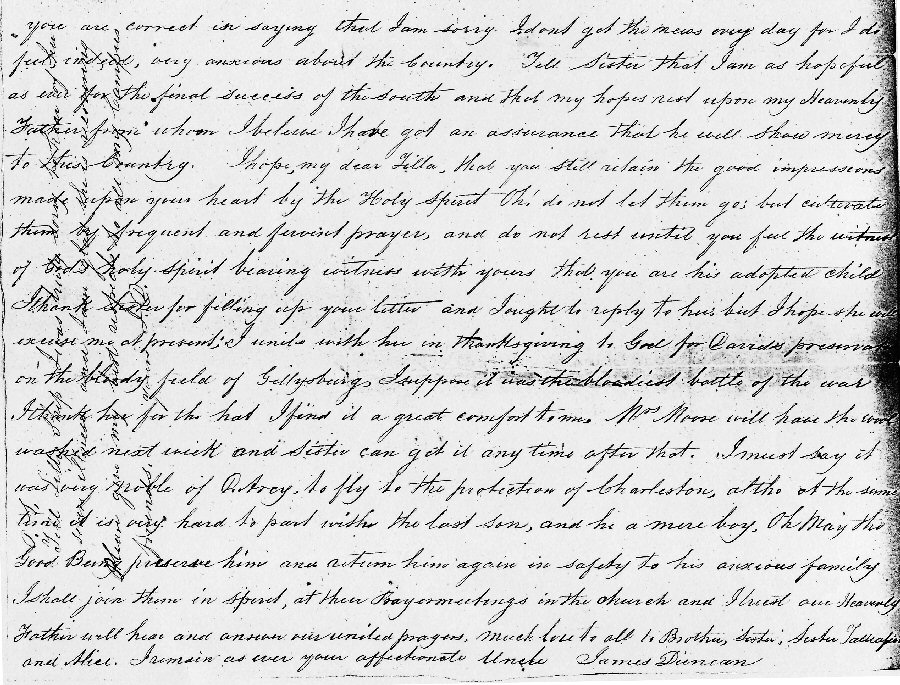 you are correct in saying that I am sorry I dont get the news every day for I do
feel indeed, very anxious about the Country. Tell Sister that I am as hopeful
as ever for the final success of the south and that my hopes rest upon my Heavenly
Father from whom I believe I have got an assurance that he will show mercy
to this Country. I hope, my dear Tilla, that you still retain the good impressions
made upon your heart by the Holy Spirit Oh! do not let them go; but cultivate
them by frequent and fervent prayer, and do not rest until you feel the witness
of Gods holy spirit bearing witness with yours that you are his adopted child
I thank Sister for filling up your letter and I ought to reply to her, but I hope she will
excuse me at present. I unite with her in thanksgiving to God for Davids preservat
on the bloody field of Gettysburg, I suppose it was the bloodiest battle of the war
I thank her for the hat I find it a great comfort to me. Mrs Moore will have the wool
washed next week and Sister can get it any time after that. I must say it
was very noble of DArcy, to fly to the protection of Charleston, altho at the same
time it is very hard to part with the last son, and he a mere boy, Oh May the
Good Being preserve him and return him again in safety to his anxious family
I shall join them in spirit, at their Prayermeetings in the church and I trust our Heavenly
Father will hear and answer our united prayers, much love to all to Brother, Sister, Sister
and Alice. I remain as ever your affectionate Uncle James Duncan
Tell
give my respects to all my
friends.